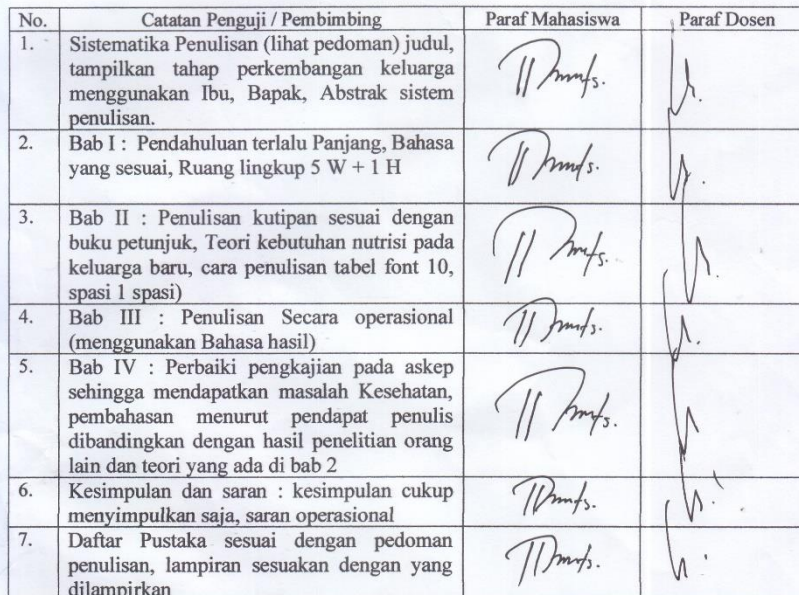 No. Catatan Penguji / Pembimbing Paraf Mahasiswa Paraf Dosen
1. Sistematika Penulisan (lihat pedoman) judul,
tampilkan tahap perkembangan keluarga
menggunakan Ibu, Bapak, Abstrak sistem
penulisan.
2. Bab I : Pendahuluan terlalu Panjang, Bahasa
yang sesuai, Ruang lingkup 5 W + 1 H
3. Bab II : Penulisan kutipan sesuai dengan
buku petunjuk, Teori kebutuhan nutrisi pada
keluarga baru, cara penulisan tabel font 10,
spasi 1 spasi)
4. Bab III : Penulisan Secara operasional
(menggunakan Bahasa hasil)
5. Bab IV : Perbaiki pengkajian pada askep
sehingga mendapatkan masalah Kesehatan,
pembahasan menurut pendapat penulis
dibandingkan dengan hasil penelitian orang
lain dan teori yang ada di bab 2
6. Kesimpulan dan saran : kesimpulan cukup
menyimpulkan saja, saran operasional
7. Daftar Pustaka sesuai dengan pedoman
penulisan, lampiran sesuaikan dengan yang
dilampirkan